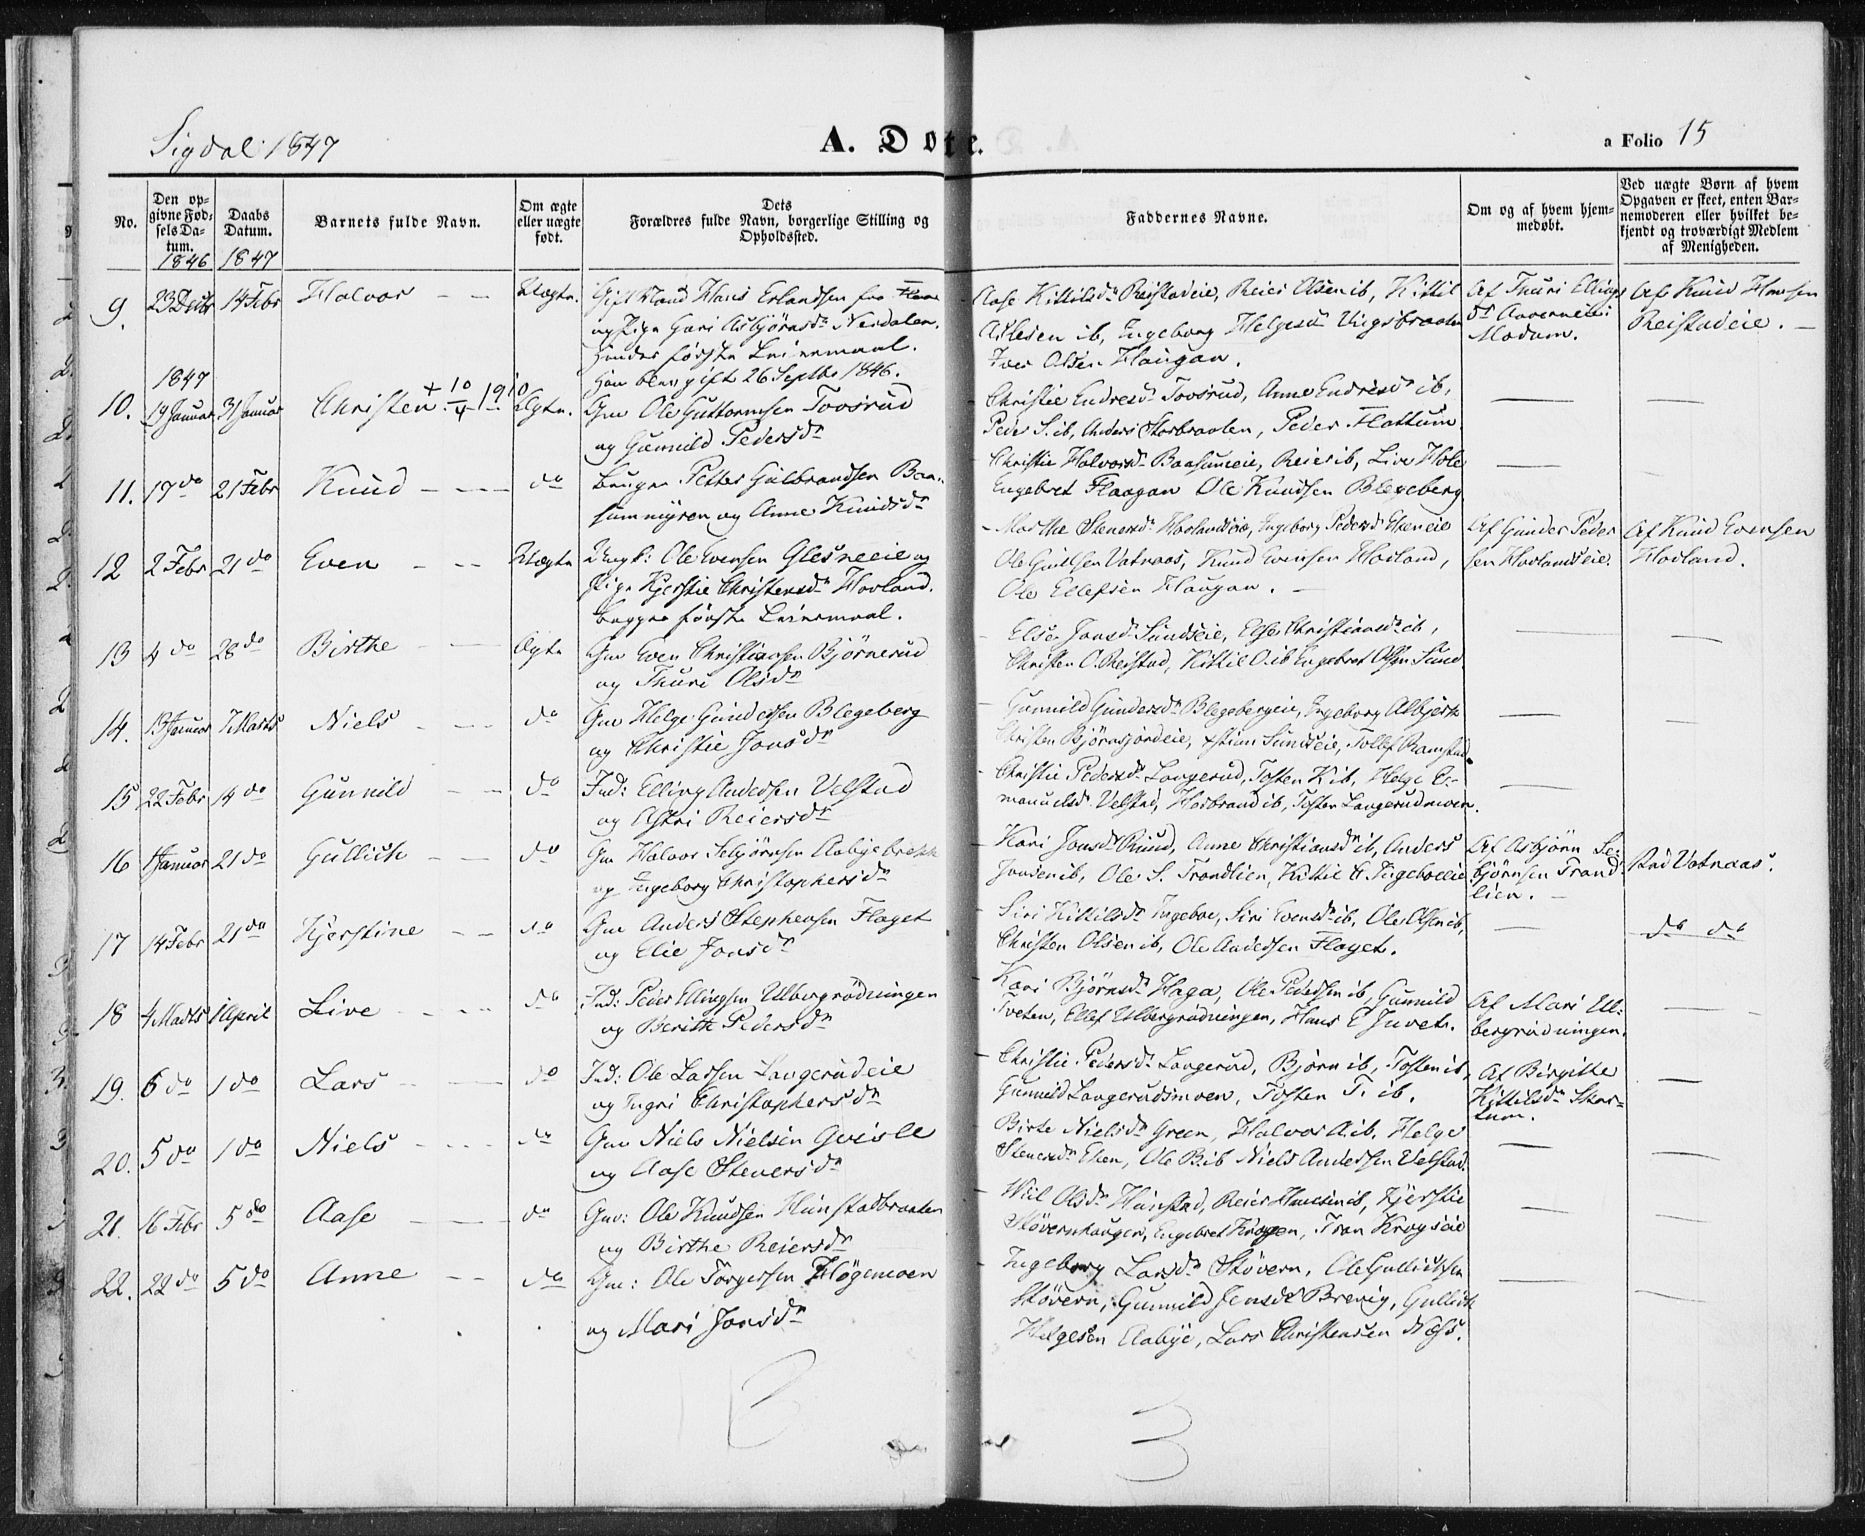 Sigdal 1847
A. Døte.
a Folio 15
No.
Den opgivne Fødsels Datum.
1846
Daabs Datum.
1847
Barnets fulde Navn.
Om ægte eller uægte født.
Dets
Forældres fulde Navn, borgerlige Stilling og
Opholdssted.
Faddernes Navne.
Om og af hvem hjemmedøbt.
Ved uægte Børn af hvem
Opgaven er skeet, enten Bar-
nemoderen eller hvilket be-
kjendt og troværdigt Medlem
af Menigheden.
9. 23 Decbr 14 Febr Halvor Uægte. Gift Mand Hans Erlandsen fra
og Pige Guri Asbjørnsdr Nerdalen.
Hendes første Leiermaal.
Han blev gift 26 Septbr 1846.
Aase Kittilsdr Reistadeie, Reier Olsen ib, Kittil
Aslesen ib, Ingeborg Helgesdr Vugsbraaten
Iver Olsen Haugan.
Af Thuri Ellings
dr
Modum.
Af Knud Hansen
Reistadeie.
1847
10. 19 Januar 31 Januar Christen + 10/4 1910 Ægte. Gm Ole Guttormsen Tovsrud
og Gunnild Pedersdr
Christie Endresdr Tovsrud, Anne Endresdr ib,
Peder S. ib, Anders Storbraaten, Peder Flattum.
11. 17 do 21 Febr Knud do Bruger Petter Gulbrandsen Baa-
summyren og Anne Knudsdr
Christie Halvorsdr Baasumeie, Reier ib, Live Hole
Engebret Flaagan Ole Knudsen Blegeberg
12 2 Febr 21 do Even Uægte Ungk: Ole Evensen Glesneeie og
Pige Kjerstie Christensdr Hovland.
Begges første Leiermaal.
Marthe Stenersdr Hovlandseie, Ingeborg Pedersdr Ekeneie
Ole Vatnaas, Knud Evensen Hovland,
Ole Ellefsen Haugan.
Af Gunder Peder
sen Hovlandseie.
Af Knud Evensen
Hovland.
13 4 do 28 do Birthe Ægte Gm Even Christiansen Bjørnerud
og Thuri Olsdr
Else Jonsdr Sundseie, Else Christiansdr ib,
Christen O. Reistad, Kittil O. ib Engebret Olsen Sund
14. 13 Januar 7 Marts Niels do Gm Helge Gundersen Blegeberg
og Christie Jonsdr
Gunnild Gundersdr Blegebergeie, Ingeborg
Christen Bjørnsjordeie, Sundseie, Tollef Ramstad
15 22 Febr 14 do Gunnild do Ind: Elling Andersen Velstad
og Astri Reiersdr
Christie Pedersdr Langerud, Tosten K ib, Helge E-
manuelsdr Velstad, Herbrand ib, Tosten Langerudmoen.
16 1 Januar 21 do Gullich do Gm Halvor Aabyebrekk
og Ingeborg Christophersdr
Kari Jonsdr Ruud, Anne Christiansdr ib, Anders
Jonsen ib, Ole S. Trondlien, Kittil G. Ingeboeeie
Af Asbjørn Se-
bjørnsen Trond-
lien.
Vatnaas.
17 14 Febr 21 do Kjerstine do Gm Anders Stephensen Flaget
og Elie Jonsdr
Siri Kittilsdr Ingeboe, Siri Evensdr ib, Ole Olsen ib,
Christen Olsen ib, Ole Andersen Flaget.
do do
18 4 Marts 1 April Live do Ind: Peder Ellingsen Ulbergrødningen
og Berith Pedersdr
Kari Bjørnsdr Haga, Ole Pedersen ib, Gunnild
Tveten, Ellef Ulbergrødningen, Hans E Juvet.
Af Mari Ul-
bergrødningen.
19. 6 do 1 do Lars do Ind: Ole Larsen Langerudeie
og Ingri Christophersdr
Christie Pedersdr Langerud, Bjørn ib, Tosten ib,
Gunnild Langerudsmoen, Tosten T. ib.
Af Birgitte
Kittilsdr Skar-
tum.
20. 5 do 1 do Niels do Gm Niels Nielsen Gvisle
og Aase Stenersdr
Birte Nielsdr Green, Halvor A. ib, Helge
Stenersdr Eken, Ole B. ib Niels Andersen Velstad.
21. 16 Febr 5 do Aase do Gm: Ole Knudsen Hunstadbraaten
og Birthe Reiersdr
Olsdr Hunstad, Reier ib, Kjerstie
Støvernhaugen, Engebret Krogen, Tron Krogseie
22. 22 do 5 do Anne do Gm: Ole Torgersen Høgemoen
og Mari Jonsdr
Ingeborg Larsdr Støvern, Ole Gullichsen
Støvern, Gunnild Jensdr Brevig, Gullich
Helgesen Aabye, Lars Christensen Næss.
3